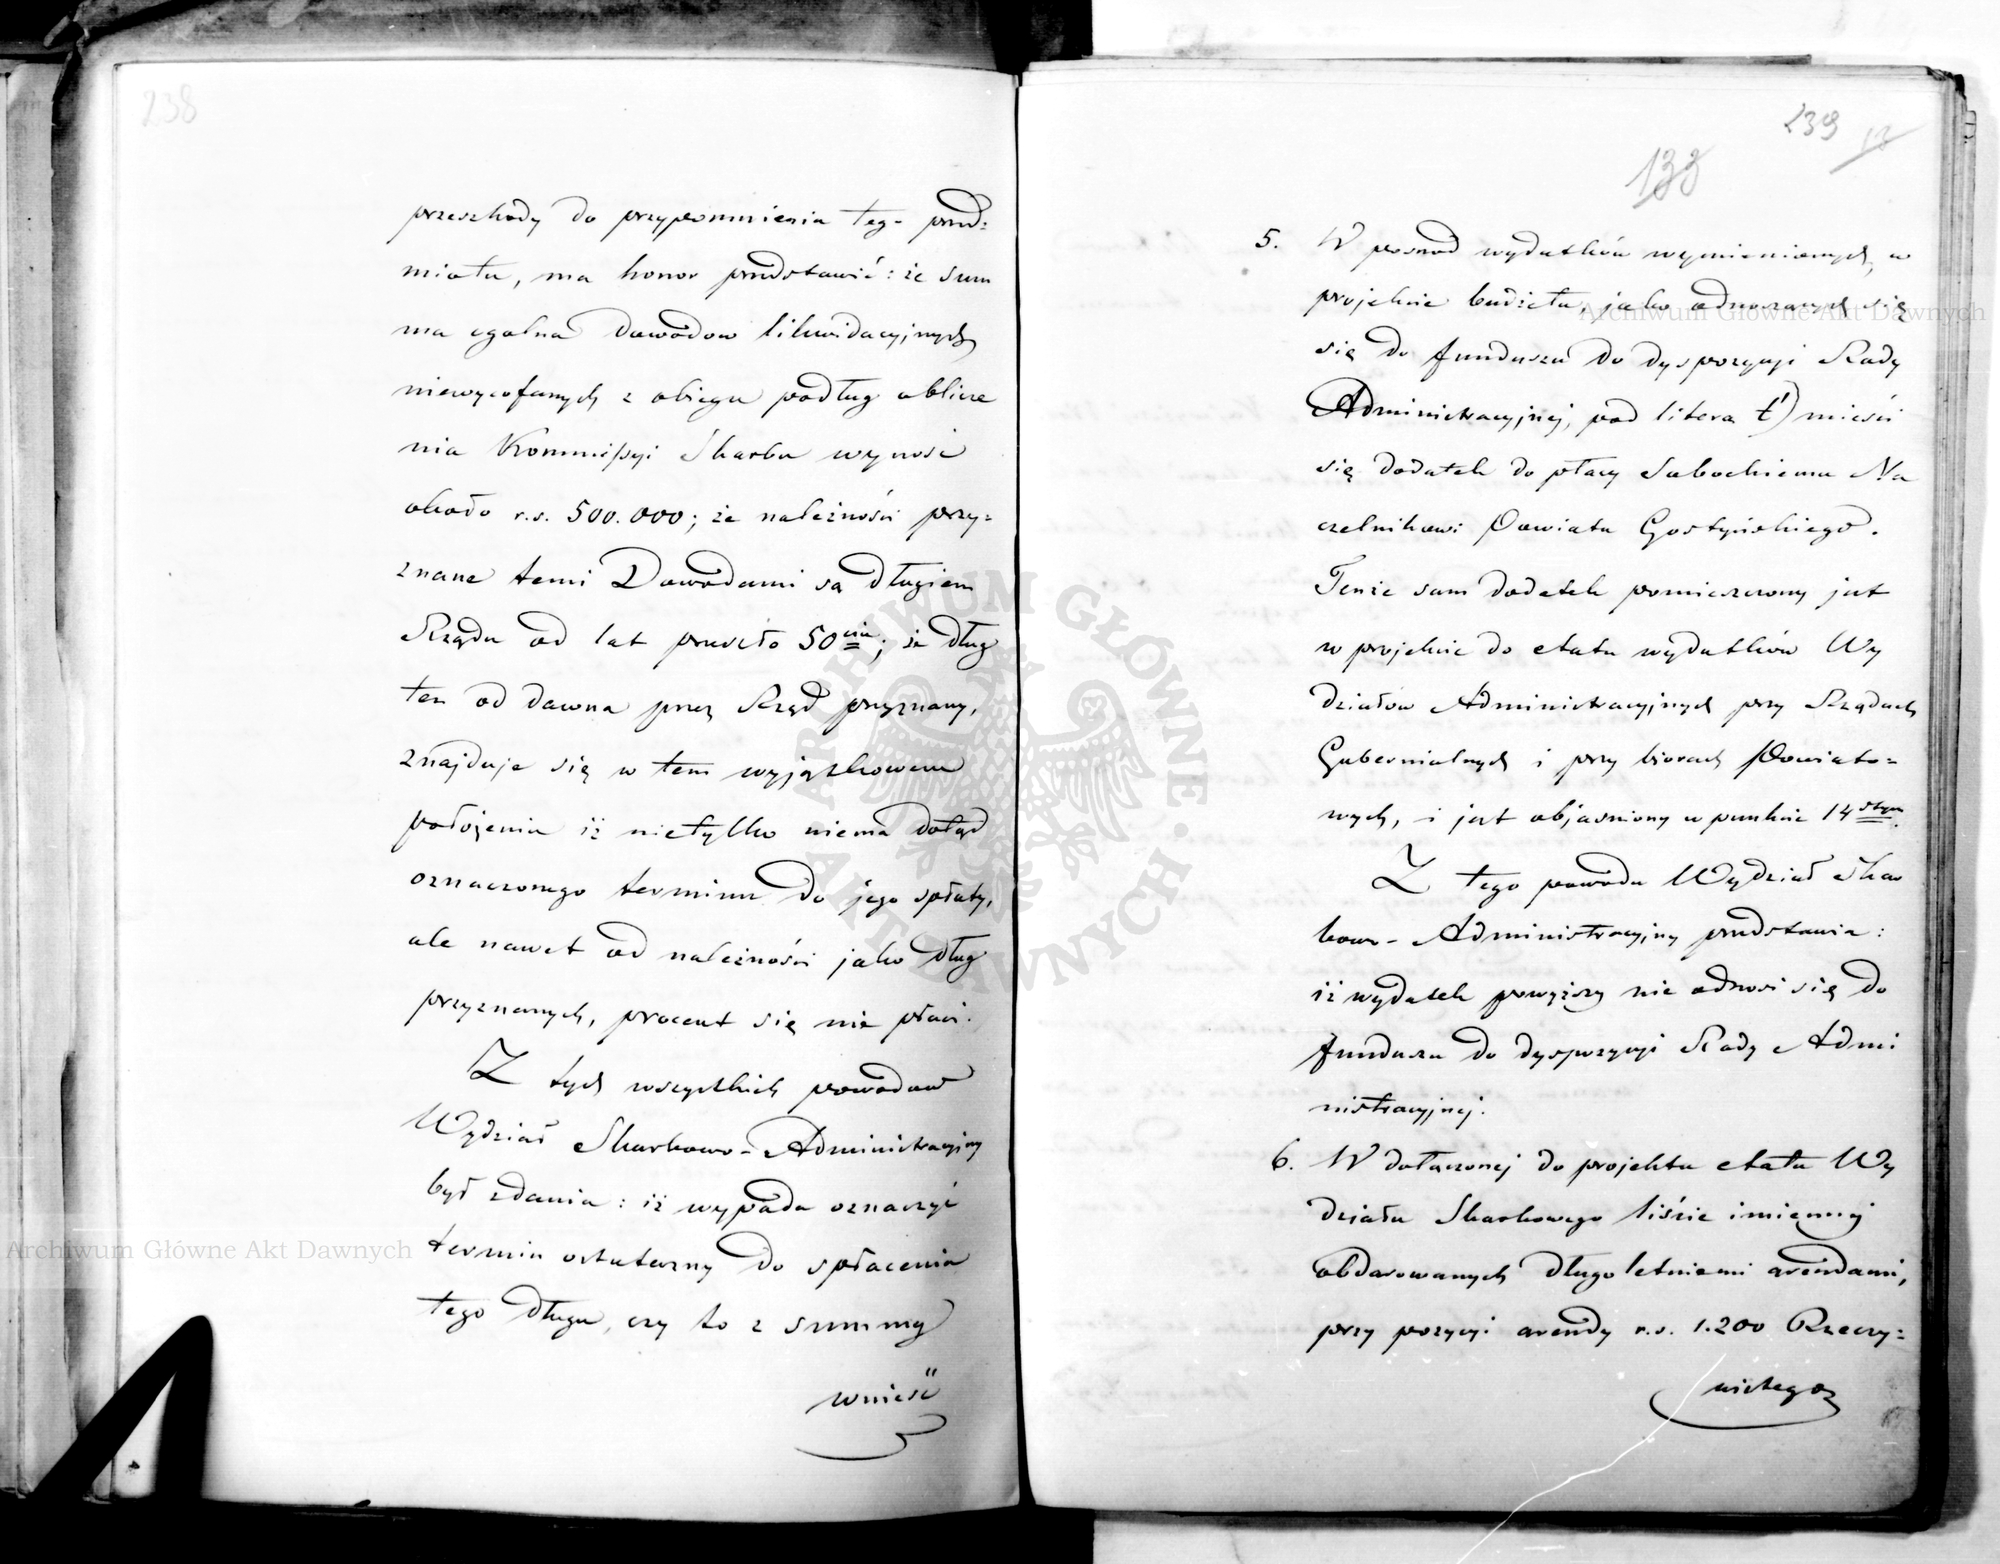 238
przeszkody do przypomnienia tego przed=
miotu, ma honor przedstawić: że sum
ma ogolna Dowodow likwidacyjnych
niewycofanych z obiegu podług oblicze
nia Kommissyi Skarbu wynosi
około r.s. 500.000; że należności przy=
znane temi Dowodami są długiem
Rządu od lat przeszło 50ciu; że dług
ten od dawna przez Rząd przyznany,
znajduje się w tem wyjątkowem
położeniu iż nietylko niema dotąd
oznaczonego terminu do jego spłaty,
ale nawet od należności jako dług
przyznanych, procent się nie płaci.
Z tych wszystkich powodow
Wydział Skarbowo-Administracyjny
był zdania: iż wypada oznaczyć
termin ostateczny do spłacenia
tego długu, czy to z summy
wnieść
239
133
5. W posrod wydatków wymienionych w
projekcie budżetu, jako odnoszących się
się do funduszu do dyspozycyi Rady
Administracyjnej, pod litera t) mieści
się dodatek do płacy Sobockiemu Na
czelnikowi Powiatu Gostyńskiego.
Tenże sam dodatek pomieszczony jest
w projekcie do etatu wydatków Wy
działów Administracyjnych przy Rządach
Gubernialnych i przy biorach Powiato=
wych, i jest objasniony w punkcie 14stym.
Z tego powodu Wydział Skar
bowo-Administracyjny przedstawia:
iż wydatek powyższy nie odnosi się do
funduszu do dyspozycyi Rady Admi
nistracyjnej.
6. W dołączonej do projektu etatu Wy
działu Skarbowego liście imiennej
obdarowanych długoletniemi arendami,
przy pozycyi arendy r.s. 1.200 Rzeczy=
wistego
Archiwum Główne Akt Dawnych
Archiwum Główne Akt Dawnych
ARCHIWUM GŁÓWNE AKT DAWNYCH